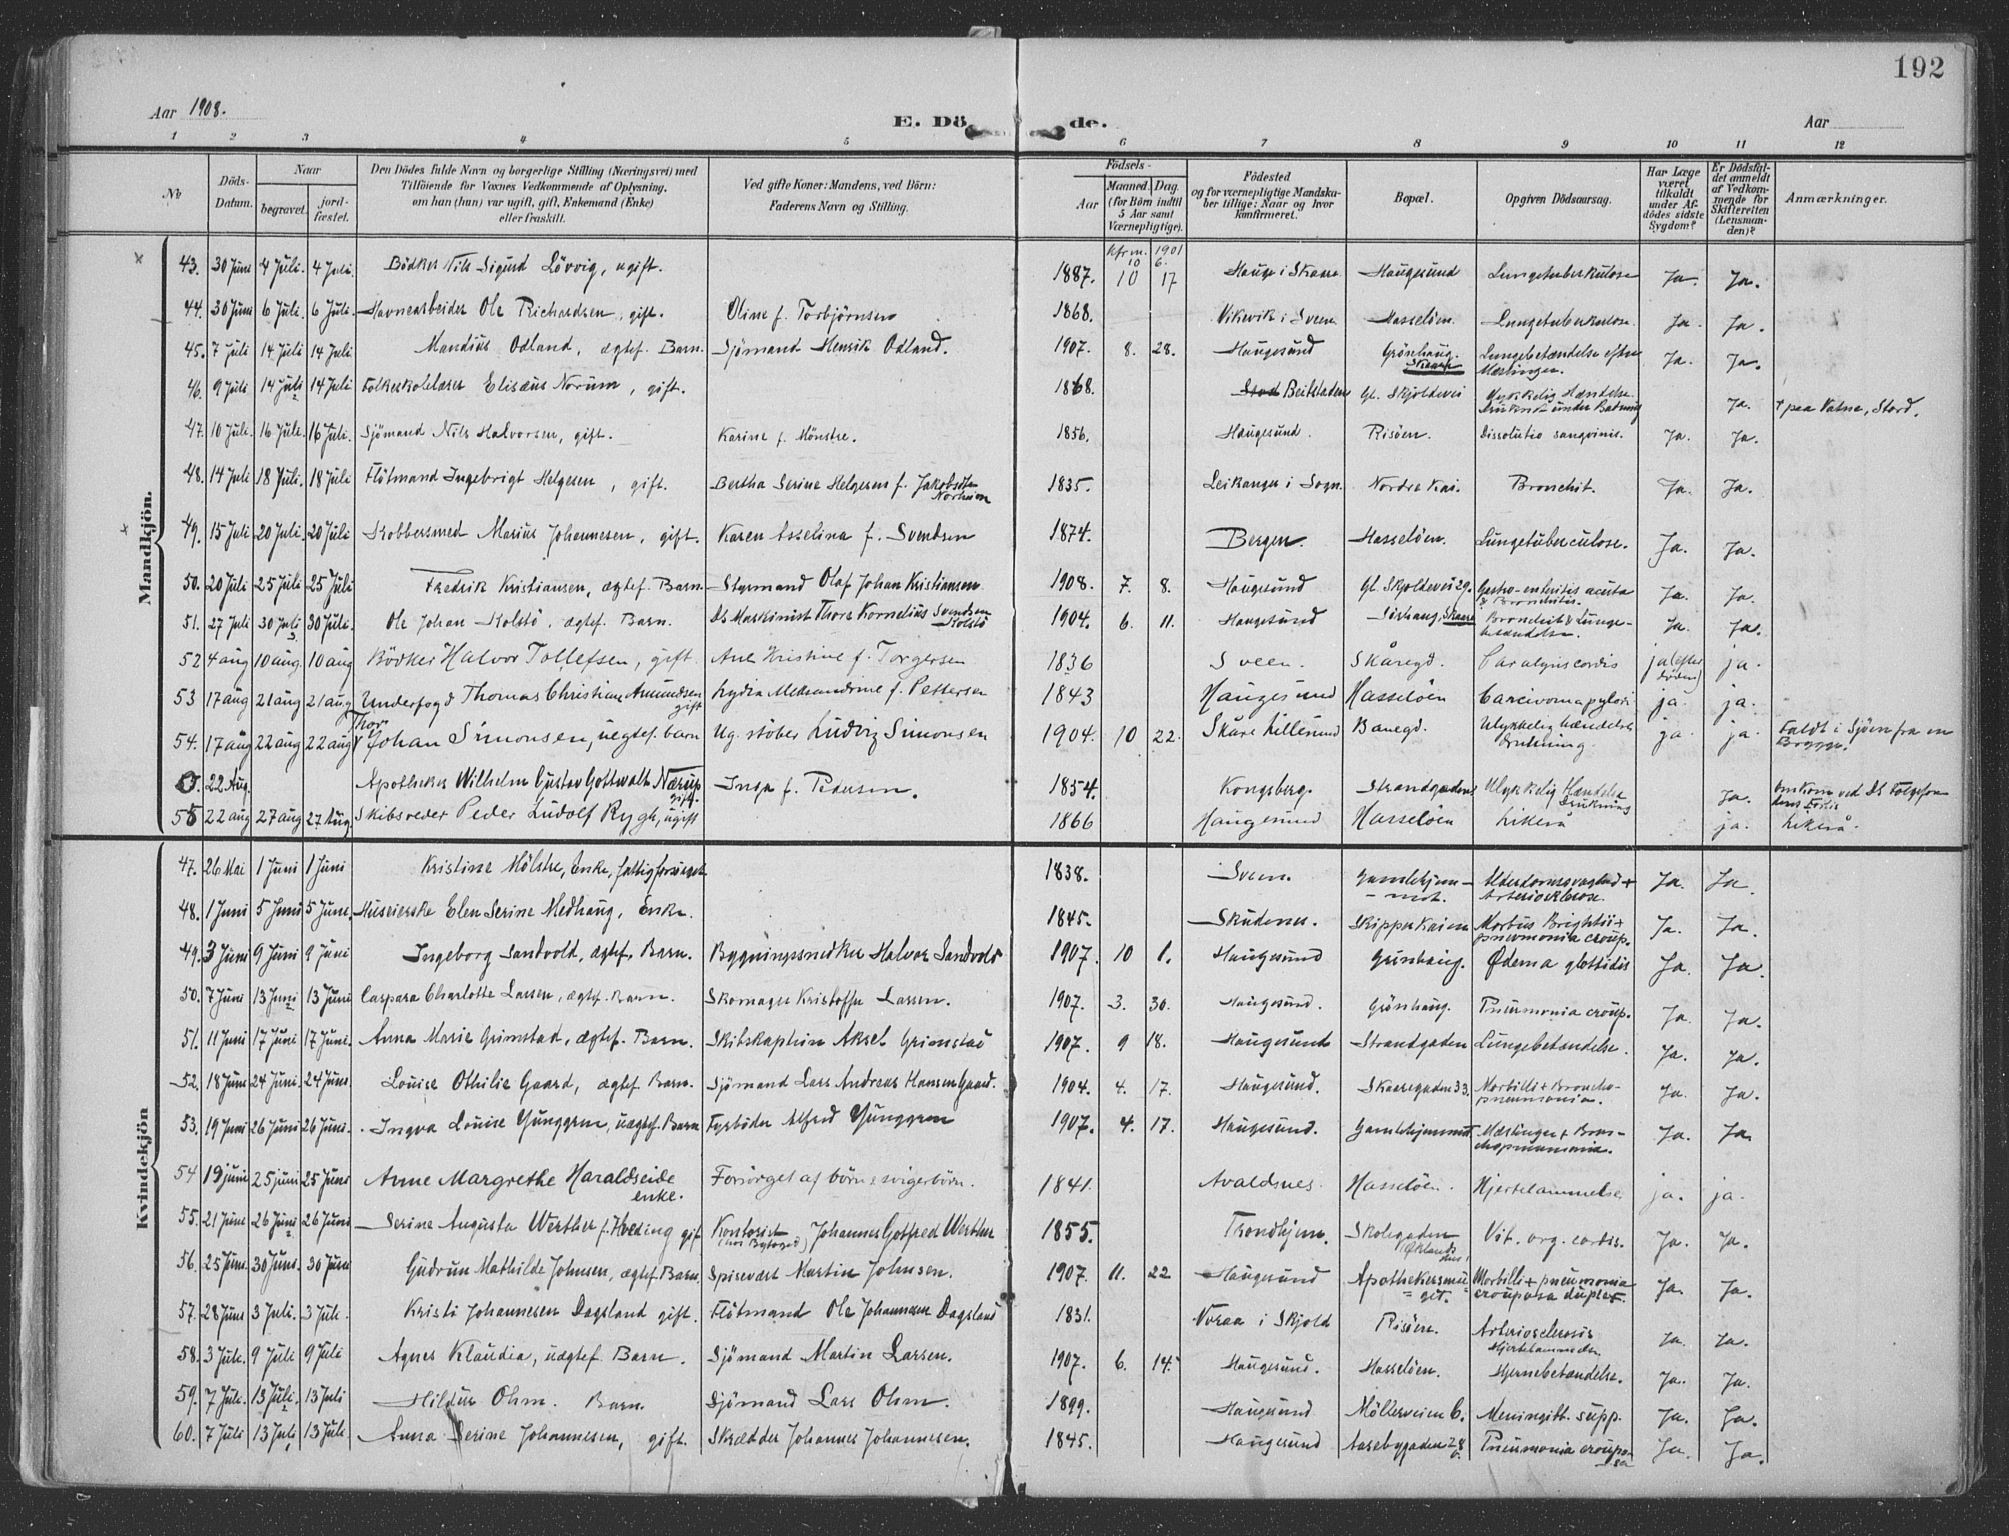 192
Aar 1908.
E. Dö de.
Aar
1 2 3 4 5 6 7 8 9 10 11 12
No
Döds-Datum.
Naar
begravet.
jord-fæstet.
Den Dödes fulde Navn og borgerlige Stilling (Næringsvei) med
Tilföiende for Voxnes Vedkommende af Oplysning,
om han (hun) var ugift, gift, Enkemand (Enke)
eller fraskilt.
Ved gifte Koner: Mandens, ved Börn:
Faderens Navn og Stilling.
Födsels-
Aar
Maaned. Dag.
(for Börn indtil
5 Aar samt
Værnepligtige).
Födested
og for værnepligtige Mandska-
ber tillige: Naar og hvor
konfirmeret.
Bopæl.
Opgiven Dödsaarsag.
Har Læge
været
tilkaldt
under Af-
dödes sidste
Sygdom?
Er Dödsfal-
det anmeldt
af Vedkom-
mende for
Skifteretten
(Lensman-
den)?
Anmærkninger.
Mandkjön.
kfrm. 1901
10 6.
43. 30 Juni 4 Juli. 4 Juli. Bödker Nils Sigurd Lövvig, ugift. 1887. 10 17 Hauge i Skaare Haugesund Lungetuberkulose Ja. Ja.
44. 30 Juni 6 Juli. 6 Juli. Havnearbeider Ole Richardsen, gift. Oline f. Torbjörnsen 1868. Vikevik i Sveen Hasselöen. Lungetuberkulose. Ja. Ja.
45. 7 Juli 14 Juli 14 Juli Mandius Odland, ægtef. Barn. Sjömand Henrik Odland. 1907. 8. 28. Haugesund Grönhaug. Skaare Lungebetændelse efter Mæslinger. Ja. Ja.
46. 9 Juli 14 Juli 14 Juli Folkeskolelærer Elisæus Norum, gift. 1868. Stod Beitstaden Gl. Skjoldevei Ulykkelig Hændelse Druknet under Badning Ja. † paa Vatne, Stord.
47. 10 Juli. 16 Juli. 16 Juli. Sjömand Nils Halvorsen, gift. Karine f. Mönstre. 1856. Haugesund. Risöen. Dissolutio sangvinis. Ja. Ja.
48. 14 Juli 18 Juli. 18 Juli Flötmand Ingebrigt Helgesen, gift. Bertha Serine Helgesen f. Jakobsen Norheim 1835. Leikanger i Sogn. Nordre Kai. Bronchit. Ja. Ja.
49. 15 Juli 20 Juli. 20 Juli Kobbersmed Marius Johannesen, gift. Karen Asselina f. Svendsen 1874. Bergen. Hasselöen. Lungetuberculose. Ja. Ja.
50. 20 Juli 25 Juli 25 Juli Fredrik Kristiansen, ægtef. Barn Styrmand Olaf Johan Kristiansen 1908. 7. 8. Haugesund Gl. Skjoldevei 29. Gastro-enteritis acuta & Bronchitis. Ja. Ja.
51. 27 Juli 30 Juli 30 Juli. Ole Johan Kolstö, ægtef. Barn. DS Maskinist Thore Kornelius Svendsen Kolstö 1904. 6. 11. Haugesund Sörhaug, Skaare Bronchit & Lunge-betændelse. Ja. Ja.
52 4 aug 10 aug. 10 aug Bödker Halvor Tollefsen, gift Ane Kristine f. Torgersen 1836 Sveen. Skåregd. Paralysis cordis ja (efter döden) ja.
53 17 aug 21 aug 21 aug Underfogd Thomas Christian Amundsen gift Lydia Aleksandrine f. Pettersen 1843 Haugesund Hasselöen Carcinoma pylori ja. ja.
54. 17 aug 22 aug 22 aug Thor Johan Simonsen, uegtef. barn Ug. stöber Ludvig Simonsen 1904. 10 22. Skåre Lillesund Banegd. Ulykkelig hændelse drukning ja. ja. Faldt i Sjöen fra en Brygge.
0. 22 Aug. Apotheker Wilhelm Gustav Gottwalt Nærup gift. Inga f. Pedersen. 1854. Kongsberg. Strandgaden Ulykkelig Hændelse Drukning Ja. Omkom ved DS Folgefondens Forlis
55 22 aug 27 aug 27 Aug. Skibsreder Peder Ludolf Rygh, ugift 1866 Haugesund Hasselöen Likeså ja. Likeså.
Kvindekjön
47. 26 Mai 1 Juni 1 Juni Kristine Mölstre, Enke, fattigforsörget 1838. Sveen. Gamlehjem-met. Alderdomssvaghed + Arteriosklerose. Ja. Ja.
48. 1 Juni 5 Juni 5 Juni. Huseierske Elen Serine Medhaug, Enke. 1845. Skudenes. Skipperkaien Morbus Brightii + pneumonia croup. Ja. Ja.
49. 3 Juni 9 Juni 9 Juni Ingeborg Sandvold, ægtef. Barn. Bygningssnedker Halvor Sandvold 1907. 10 1. Haugesund Grönhaug. Ødema glottidis Ja. Ja.
50. 7 Juni 13 Juni 13 Juni Caspara Charlotte Larsen, ægtef. Barn. Skomager Kristoffer Larsen. 1907. 3. 30. Haugesund. Grönhaug. Pneumonia croup. Ja. Ja.
51. 11 Juni 17 Juni 17 Juni. Anna Marie Grimstad, ægtef. Barn. Skibskaptein Aksel Grimstad 1907. 9 18. Haugesund Strandgaden Lungebetændelse. Ja. Ja.
52. 18 Juni 24 Juni. 24 Juni. Louise Othilie Gaard, ægtef. Barn. Sjömand Lars Andreas Hansen Gaard. 1904. 4. 17. Haugesund. Skaaregaden 33. Morbilli + Broncho-pneumonia. Ja. Ja.
53. 19 Juni 26 Juni 26 Juni. Ingva Louise Yünggren, uægtef. Barn Fyrböder Alfred Yünggren 1907. 4. 17. Haugesund. Gamlehjemmet Mæslinger + Bron-chopneumonia. Ja. Ja.
54 19 juni 25 juni 25 Juni Anne Margrethe Haraldseide enke. Forsörget af börn & svigerbörn. 1841. Avaldsnes. Hasselöen. Hjertelammelse ja. ja.
55. 21 Juni 26 Juni 26 Juni Serine Augusta Werther f. Heding gift Kontorist (hos Byfoged) Johannes Gotfred Werther 1855. Trondhjem. Skolegaden Öklands hus. Vit. org. cordis. Ja. Ja.
56. 25 Juni. 30 Juni. 30 Juni Gudrun Mathilde Johnsen, ægtef. Barn. Spisevært Martin Johnsen. 1907. 11. 22 Haugesund Apothekersmu-get. Morbilli + pneumonia crouposa duplex. Ja. Ja.
57. 28 Juni 3 Juli. 3 Juli. Kristi Johannesen Dagsland gift. Flötmand Ole Johannesen Dagsland 1831. Vöraa i Skjold Risöen. Arteriosclerosis Hjertelammelse Ja. Ja.
58. 3 Juli. 9 Juli 9 Juli Agnes Klaudia, uægtef. Barn. Sjömand Martin Larsen. 1907. 6. 14. Haugesund. Hasselöen. Hjernebetændelse. Ja. Ja.
59. 7 Juli. 13 Juli. 13 Juli Hildur Ohm. Barn. Sjömand Lars Ohm. 1899. Haugesund Möllerveien 6. Meningitt. supp. Ja. Ja.
60. 7 Juli 13 Juli 13 Juli. Anna Serine Johannesen, gift. Skrædder Johannes Johannesen. 1845. Haugesund Aasebygaden 28 Pneumonia croupo-sa Ja. Ja.